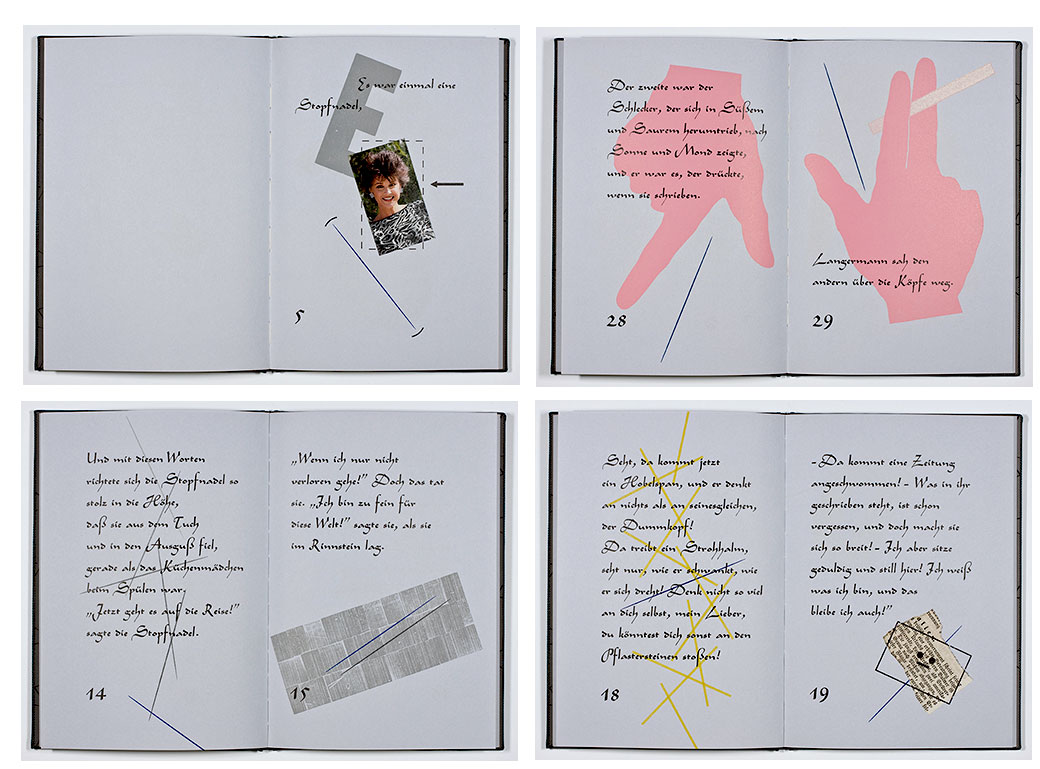 Es war einmal eine
Stopfnadel,
5
Der zweite war der
Schlecker, der sich in Süßem
und Saurem herumtrieb, nach
Sonne und Mond zeigte,
und er war es, der drückte,
wenn sie schrieben.
28
Langermann sah den
andern über die Köpfe weg.
29
Und mit diesen Worten
richtete sich die Stopfnadel so
stolz in die Höhe,
daß sie aus dem Tuch
und in den Ausguß fiel,
gerade als das Küchenmädchen
beim Spülen war.
„Jetzt geht es auf die Reise!”
sagte die Stopfnadel.
14
„Wenn ich nur nicht
verloren gehe!” Doch das tat
sie. „Ich bin zu fein für
diese Welt!” sagte sie, als sie
im Rinnstein lag.
15
Seht, da kommt jetzt
ein Hobelspan, und er denkt
an nichts als an seinesgleichen,
der Dummkopf!
Da treibt ein Strohhalm,
seht nur, wie er schwankt, wie
er sich dreht! Denk nicht so viel
an dich selbst, mein Lieber,
du könntest dich sonst an den
Pflastersteinen stoßen!
18
- Da kommt eine Zeitung
angeschwommen! - Was in ihr
geschrieben steht, ist schon
vergessen, und doch macht sie
sich so breit! - Ich aber sitze
geduldig und still hier! Ich weiß
was ich bin, und das
bleibe ich auch!”
19